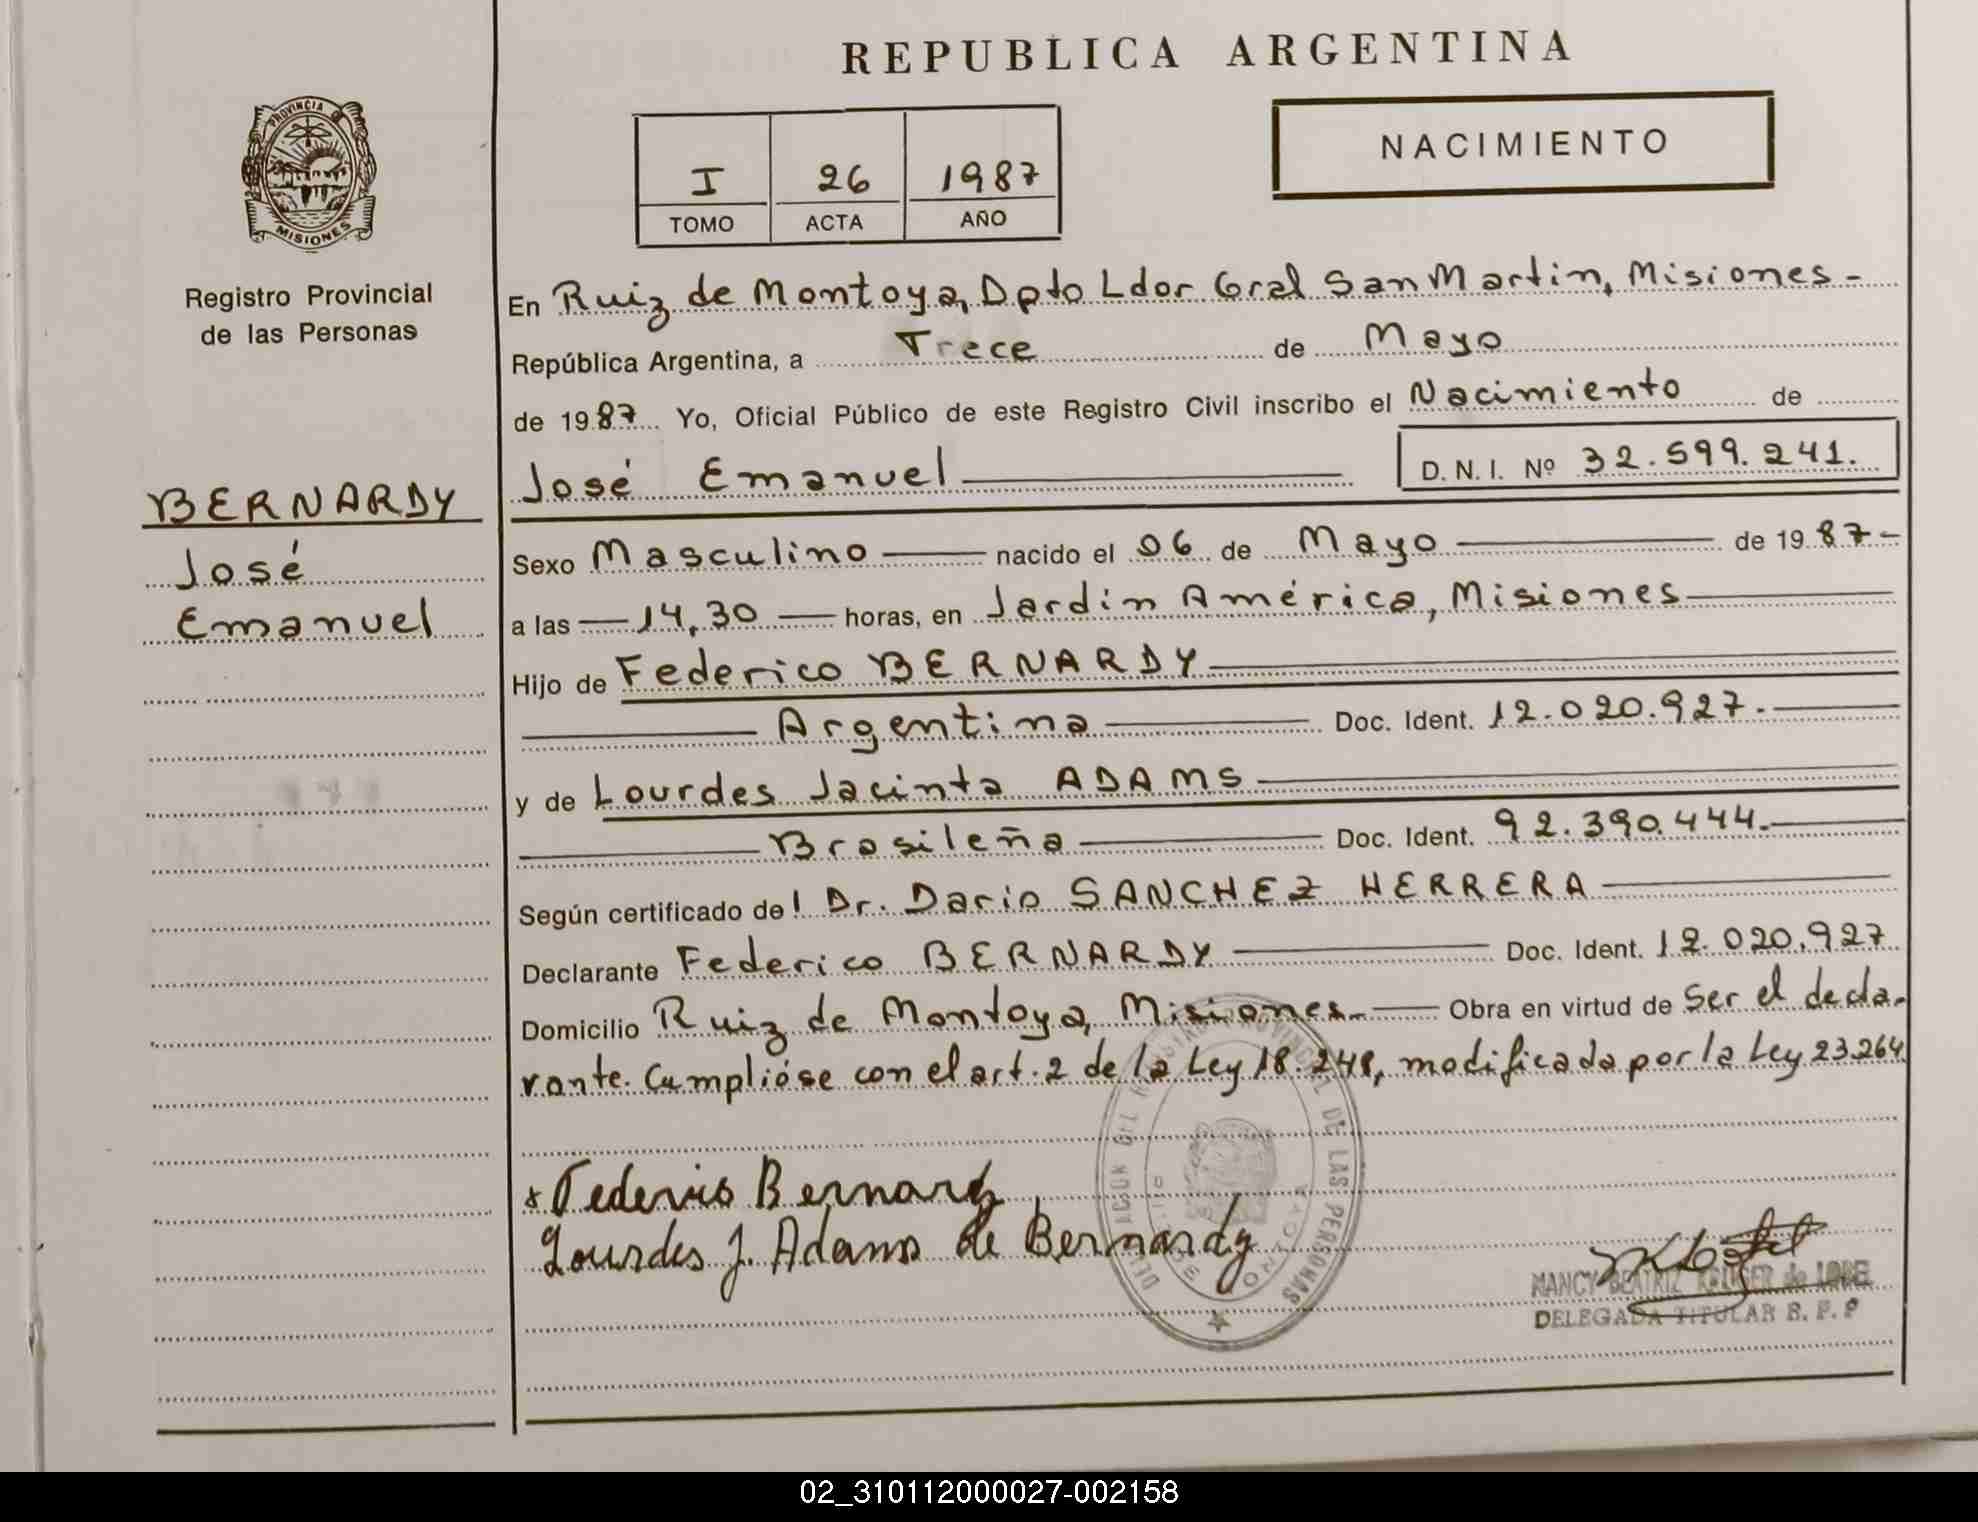 REPUBLICA ARGENTINA
PROVINCIA DE
MISIONES
Registro Provincial
de las Personas
I 26 1987
TOMO ACTA AÑO
NACIMIENTO
En Ruiz de Montoya, Dpto Ldor Gral San Martin, Misiones -
República Argentina, a Trece de Mayo
de 1987 Yo, Oficial Público de este Registro Civil inscribo el Nacimiento de
José Emanuel D. N. I. Nº 32.599.241.
BERNARDY
José
Emanuel
Sexo Masculino nacido el 06 de Mayo de 1987-
a las 14,30 horas, en Jardín América, Misiones
Hijo de Federico BERNARDY
Argentina Doc. Ident. 12.020.927.-
y de Lourdes Jacinta ADAMS
Brasileña Doc. Ident. 92.390.444.-
Según certificado del Dr. Dario SANCHEZ HERRERA
Declarante Federico BERNARDY Doc. Ident. 12.020.927
Domicilio Ruiz de Montoya, Misiones.- Obra en virtud de ser el decla-
rante. Cumplióse con el art. 2 de la Ley 18.248, modificada por la Ley 23.264
DELEGACION DEL REGISTRO PROVINCIAL DE LAS PERSONAS
MONTOYA
x Federico Bernardy
Lourdes J. Adams de Bernardy
NANCY BEATRIZ KRUGER de LOBEL
DELEGADA TITULAR R. P. P
02_310112000027-002158